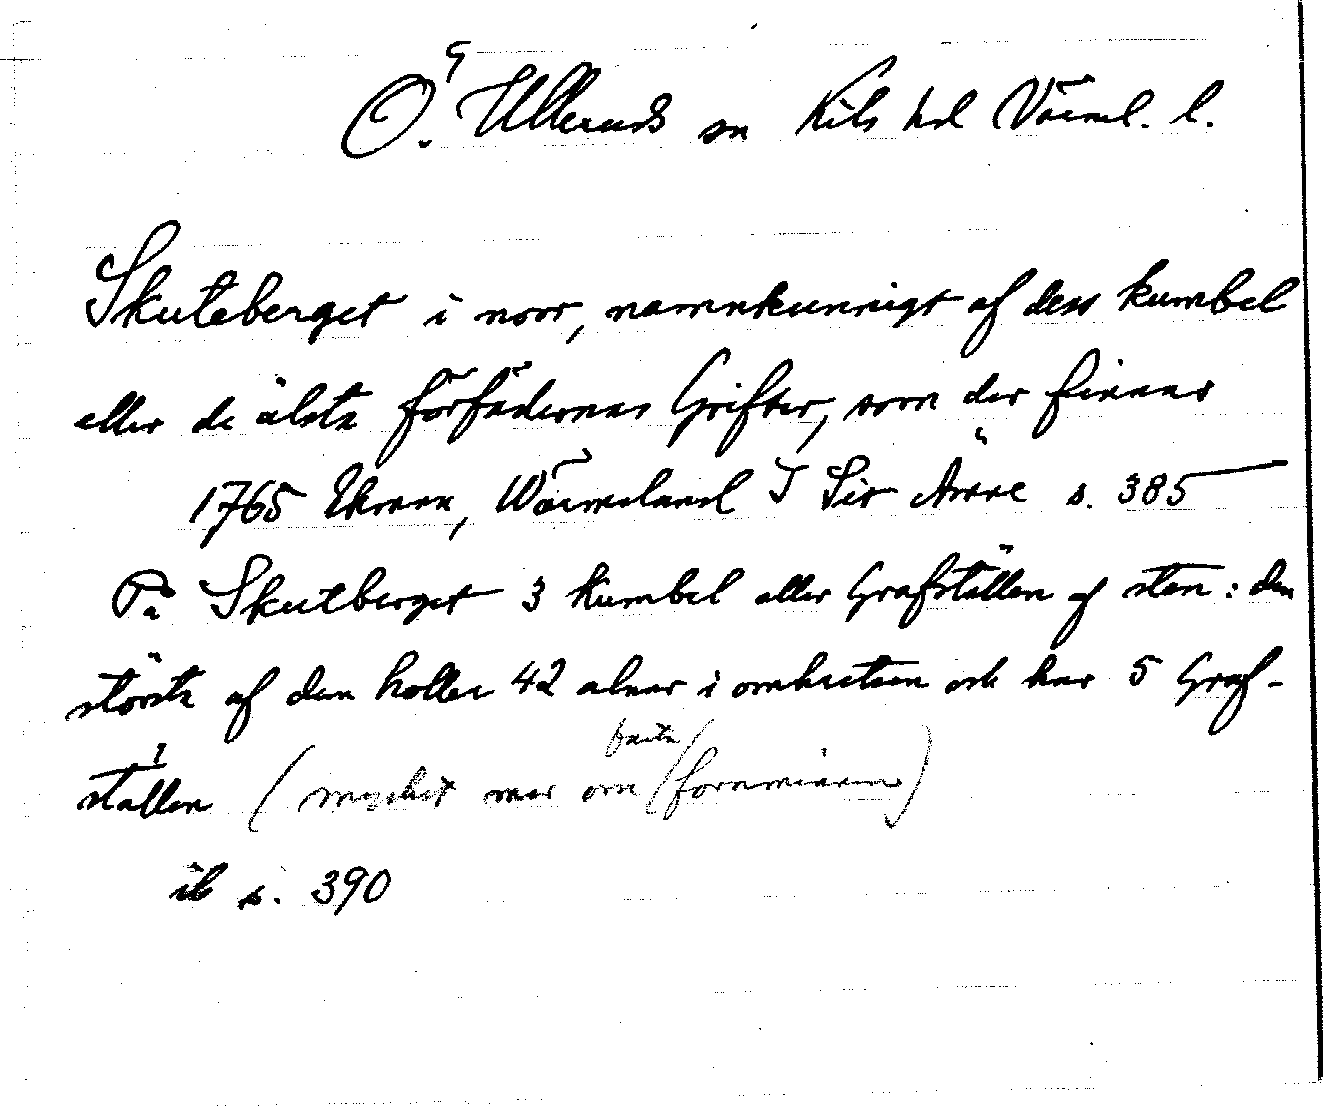 Ö. Ulleruds sn Kils hd Värml. l.
Skuteberget i norr, namnkunnigt af dess kumbel
eller de älsta förfädernes Grifter, som der finnas
1765 Ekman, Wärmeland I Sin Ämne s. 385
På Skutberget 3 kumbel eller Grafställen af sten: den
störste af dem håller 42 alnar i omkretsen och har 5 Graf-
ställen (mycket mer om fasta fornminnen)
ib s. 390